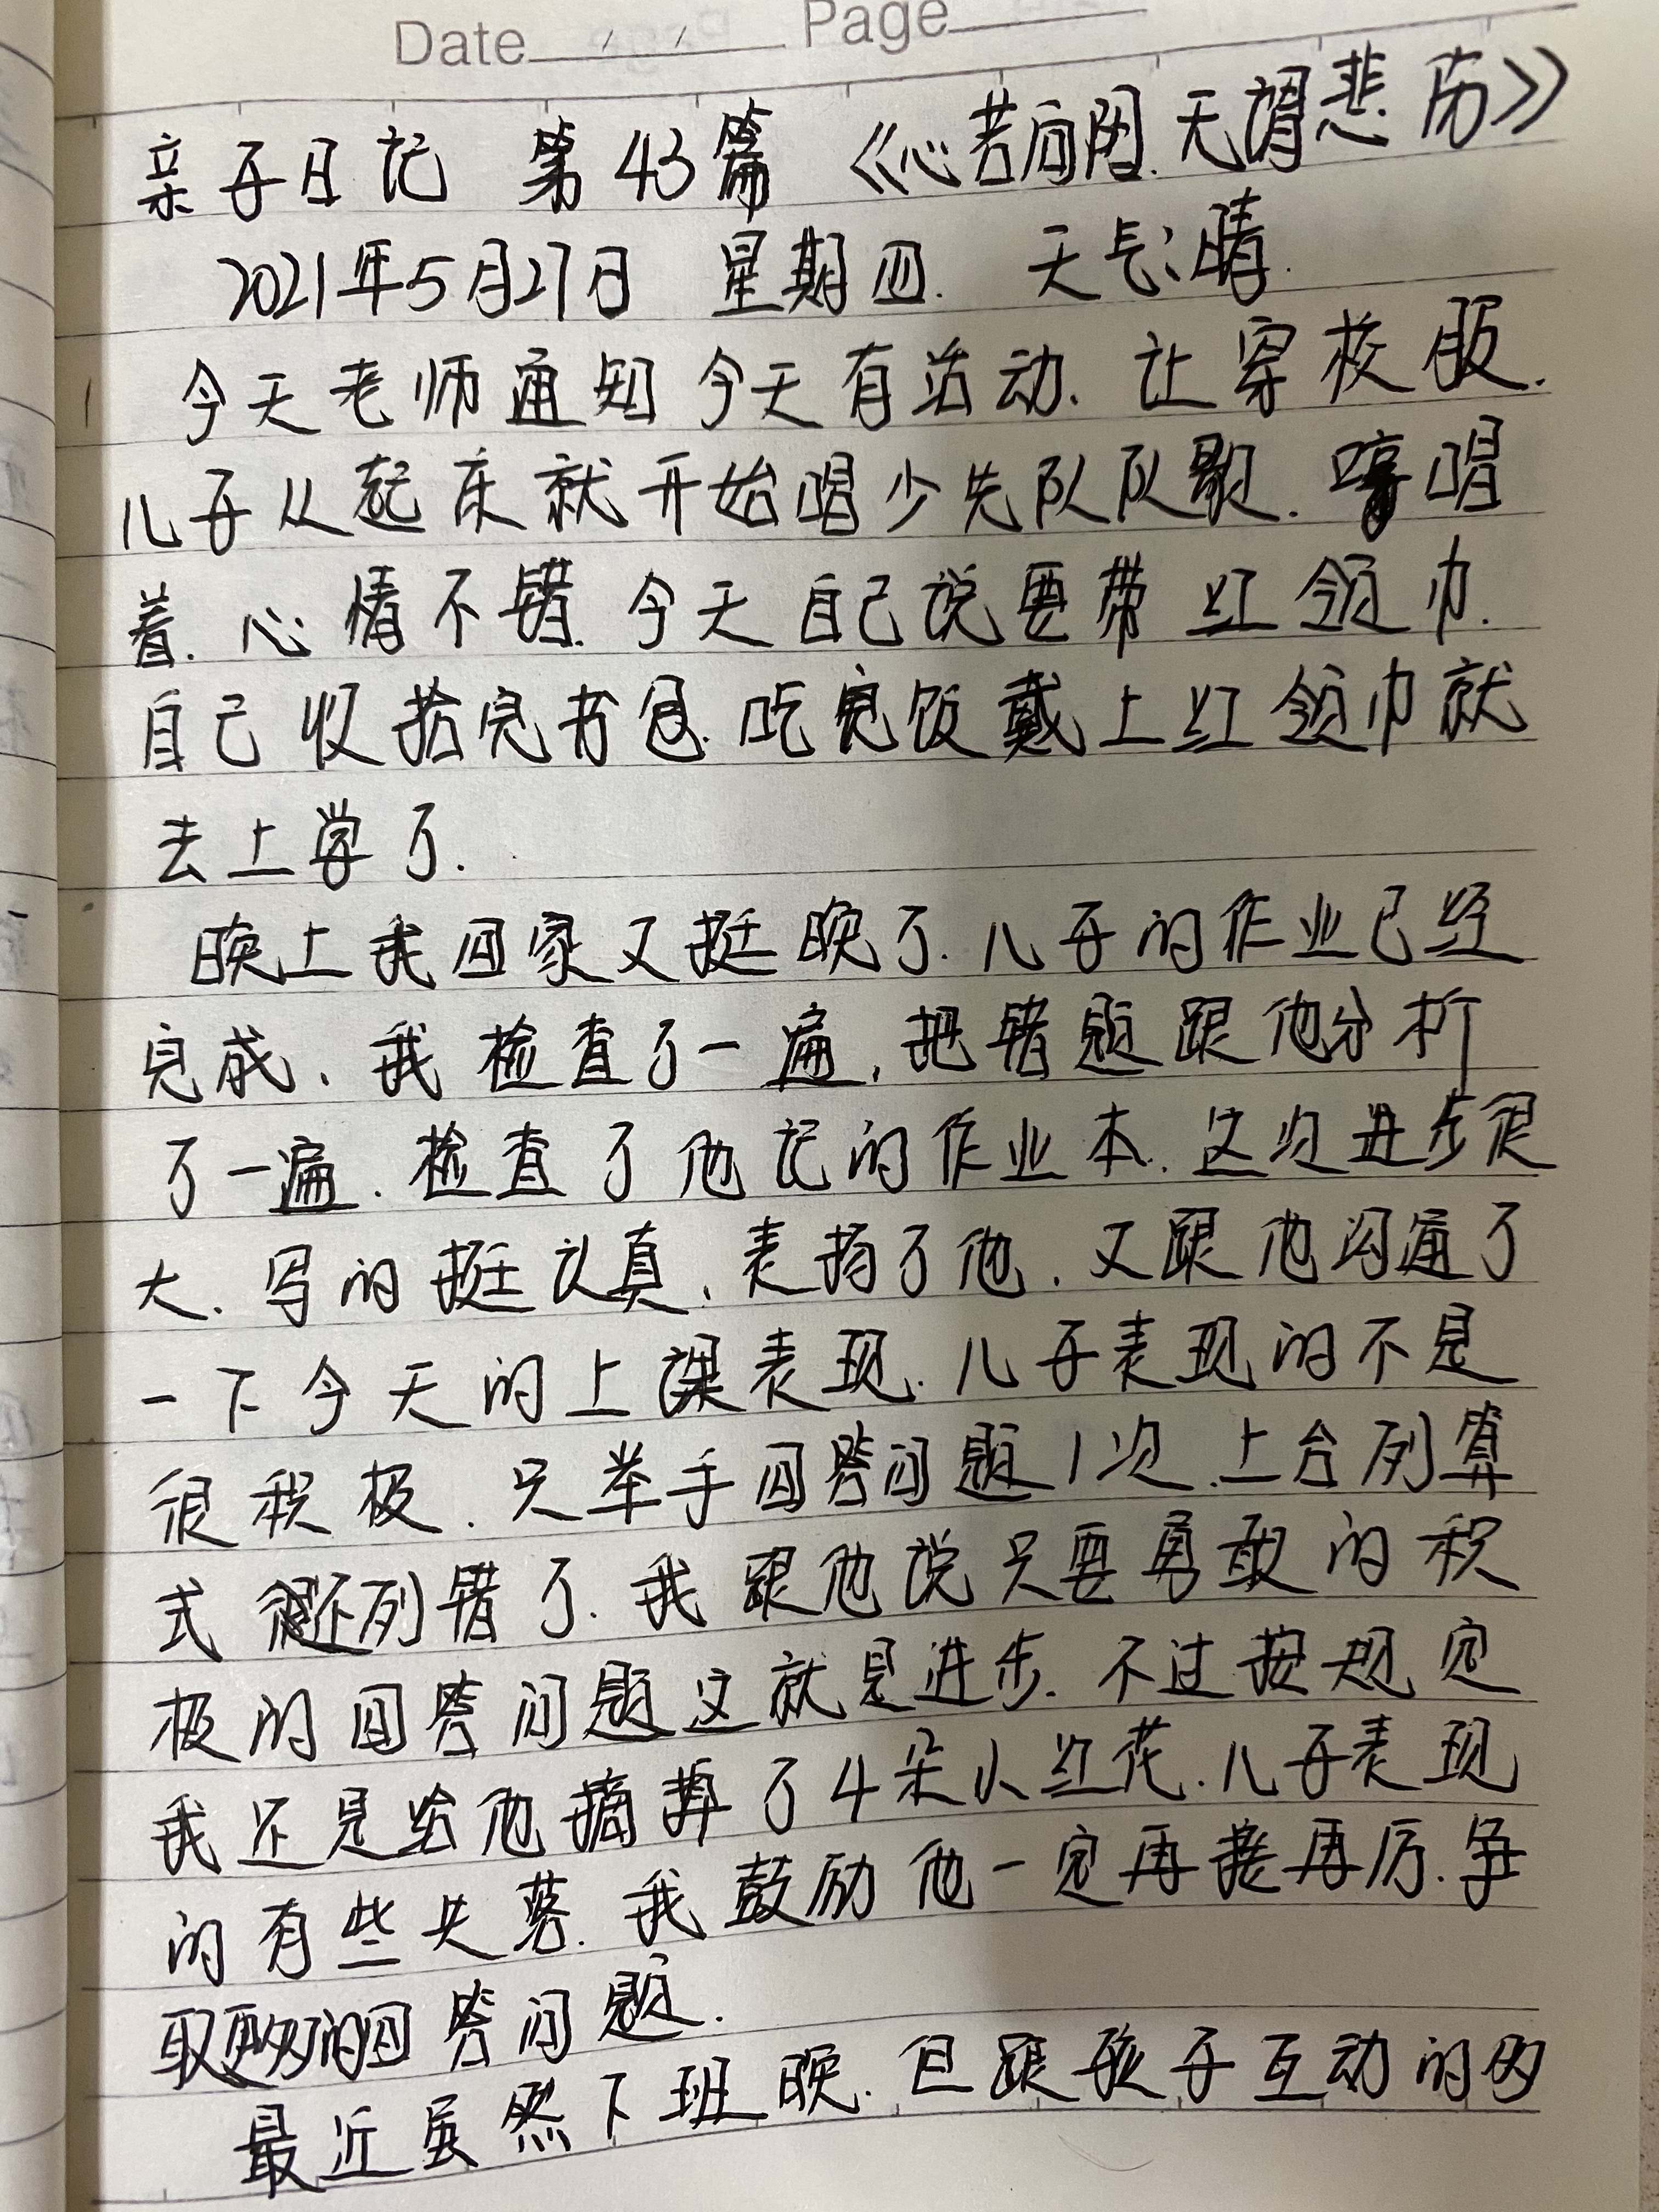 Date / / Page
亲子日记 第43篇 《心若向阳.无谓悲伤》
2021年5月27日 星期四. 天气:晴.
今天老师通知今天有活动.让穿校服.
儿子从起床就开始唱少先队队歌. 唱
着.心情不错.今天自己说要带红领巾.
自己收拾完书包.吃完饭戴上红领巾就
去上学了.
晚上我回家又挺晚了.儿子的作业已经
完成、我检查了一遍,把错题跟他分析
了一遍.检查了他记的作业本.这次进步很
大.写的挺认真、表扬了他.又跟他沟通了
一下今天的上课表现.儿子表现的不是
很积极.只举手回答问题1次.上台列算
式 还列错了.我跟他说只要勇敢的积
极的回答问题这就是进步.不过按规定
我还是给他摘掉了4朵小红花.儿子表现
的有些失落.我鼓励他一定再接再厉.争
取更多的回答问题.
最近虽然下班晚.但跟孩子互动的多